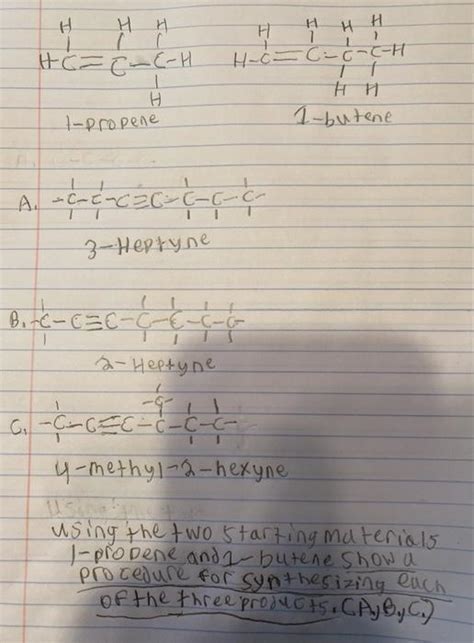 H H H H H H H
H-C=C-C-H H-C=C-C-C-H
H H H
1-propene 1-butene
A. -C-C-C≡C-C-C-C-
3-Heptyne
B. -C-C≡C-C-C-C-C-
2-Heptyne
-C-
C. -C-C≡C-C-C-C-
4-methyl-2-hexyne
using the two starting materials
1-propene and 1-butene show a
procedure for synthesizing each
of the three products. (A,B,C,)